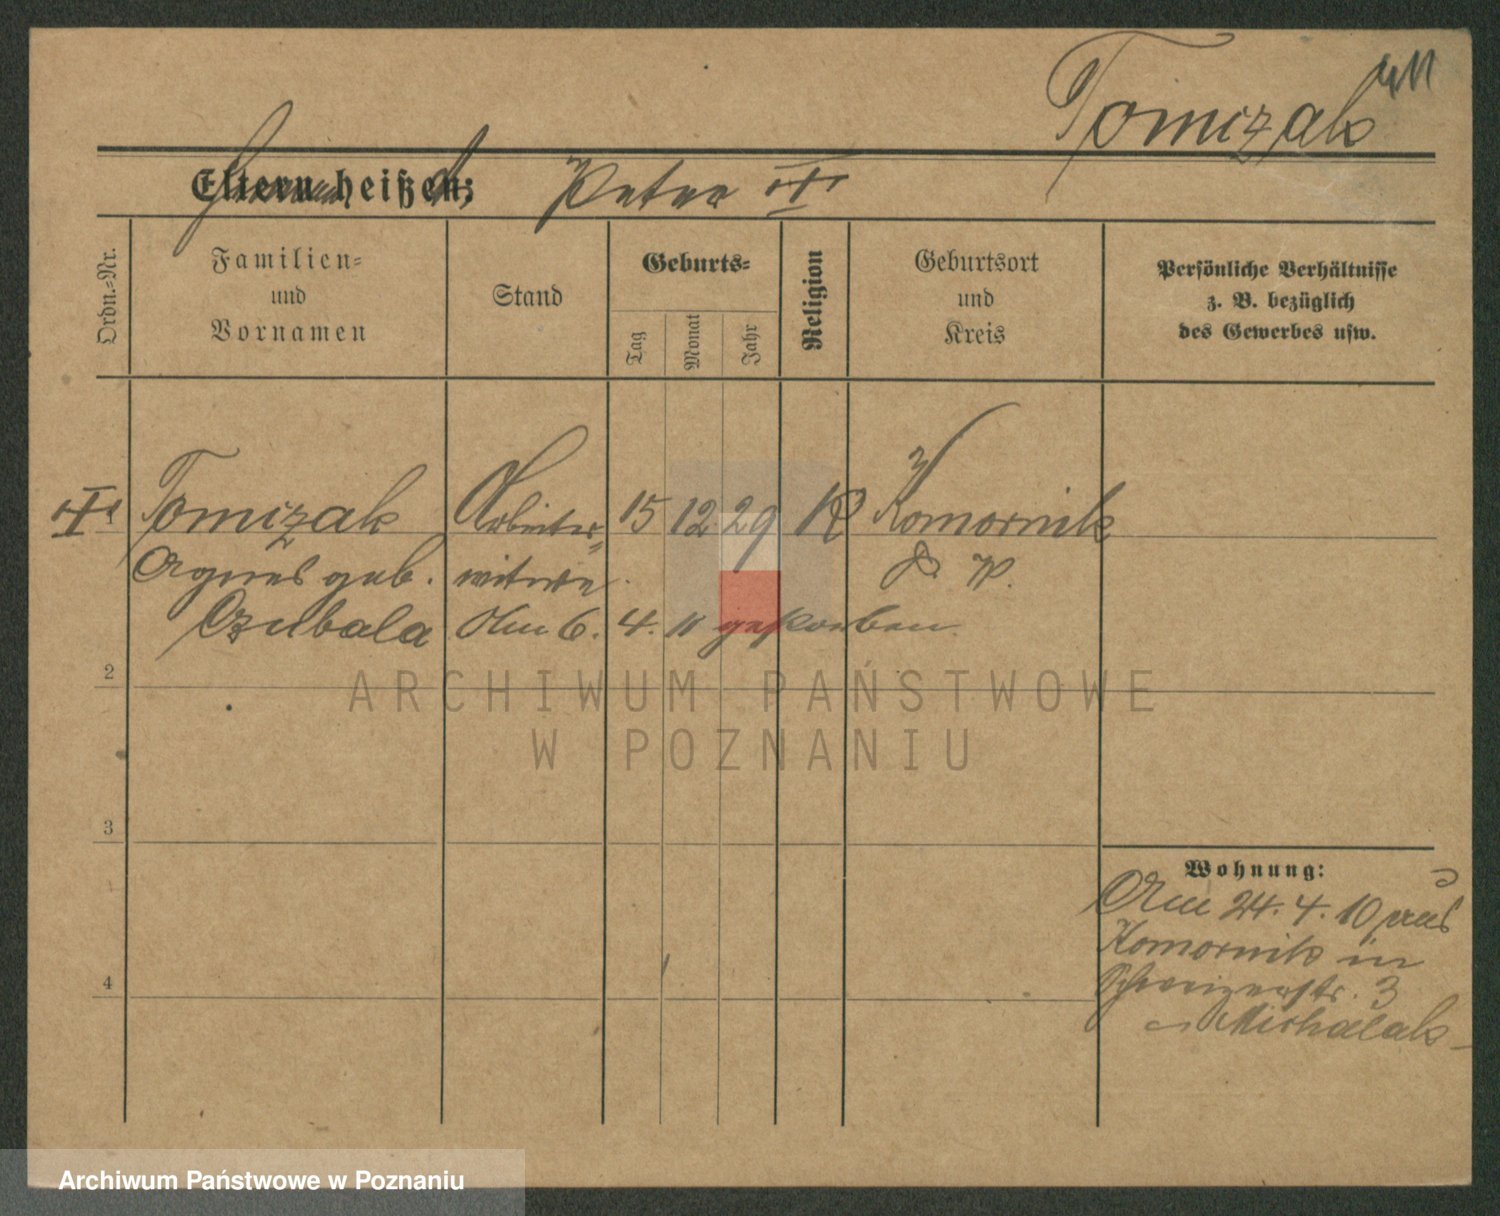 Tomizak
Eltern heißen: Peter
Ordn.-Nr.
Familien-
und
Vornamen
Stand
Geburts-
Tag
Monat
Jahr
Religion
Geburtsort
und
Kreis
Persönliche Verhältnisse
z. B. bezüglich
des Gewerbes usw.
1 Tomizak Arbeiter- 15 12 29 K Komornik
Agnes geb. witwe P. W.
Czubala Am 6. 4. 11 gestorben.
2
ARCHIWUM PAŃSTWOWE
W POZNANIU
3
4
Wohnung:
Am 24. 4. 10 aus
Komornik in
Schweizerstr. 3
Michalak
Archiwum Państwowe w Poznaniu